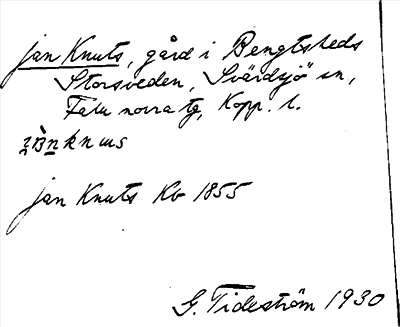 Jan Knuts, gård i Bengtsheds
Storsveden, Svärdsjö sn,
Falu norra tg, Kopp. l.
Jan Knuts Kb 1855
G. Tideström 1930